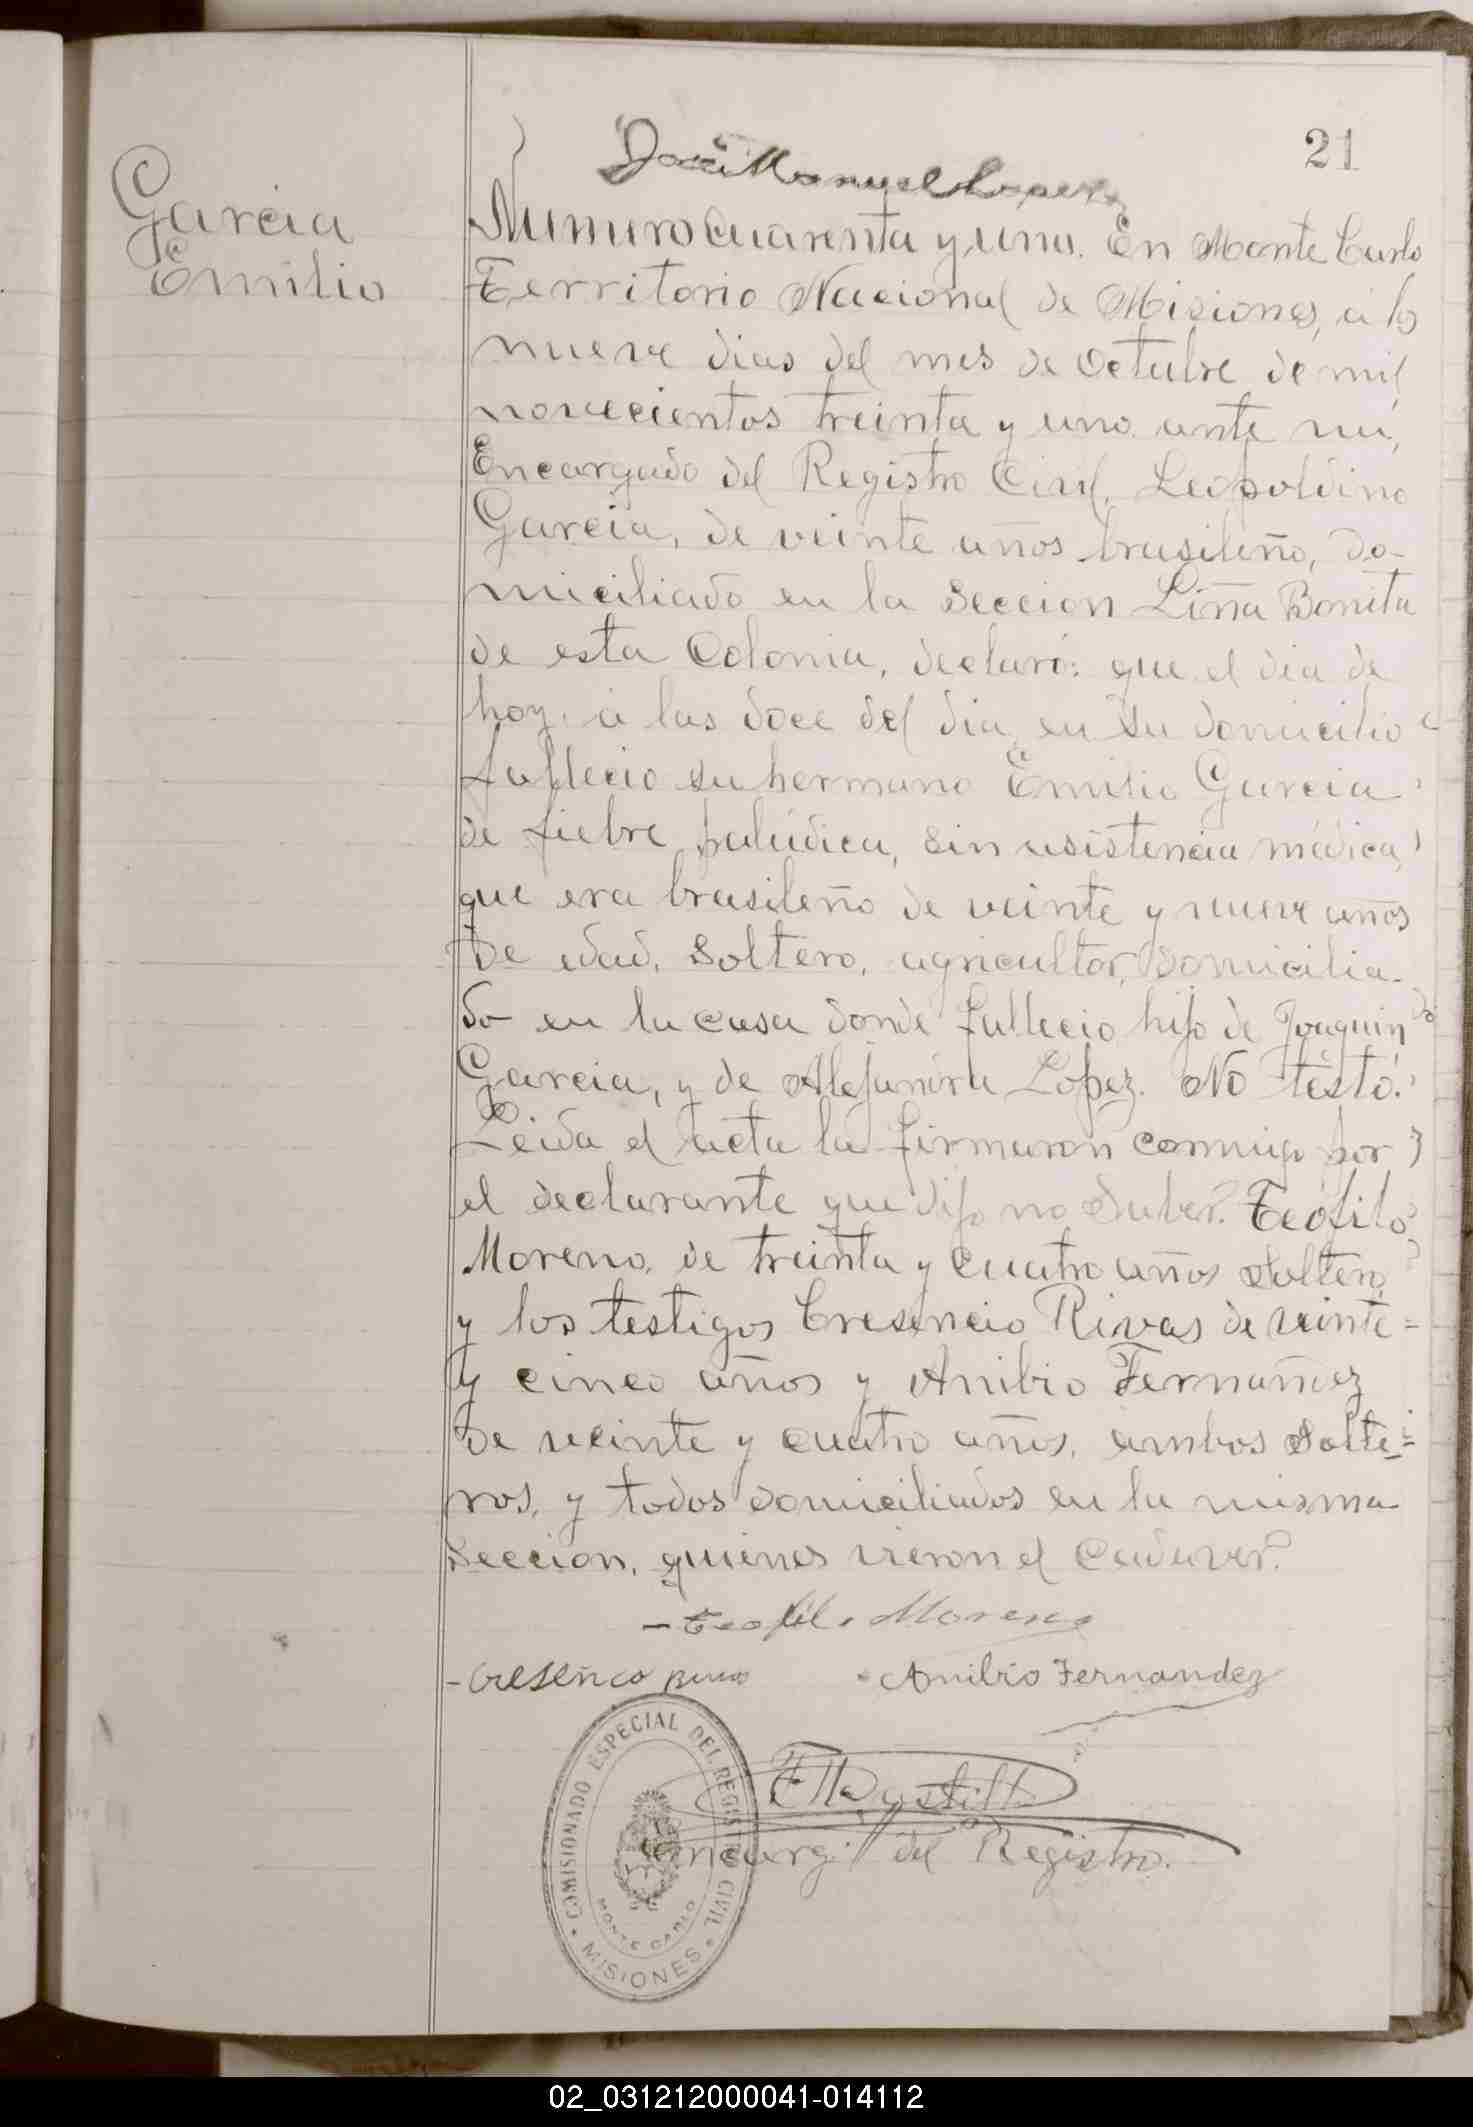 21
José Manuel Lopez
Garcia
Emilio
Numero cuarenta y uno. En Monte Carlo
Territorio Nacional de Misiones, a los
nueve dias del mes de Octubre de mil
novecientos treinta y uno. ante mi,
Encargado del Registro Civil, Leopoldino
Garcia, de veinte años brasileño, do-
miciliado en la Seccion Liña Bonita
de esta Colonia, declaró: que el dia de
hoy, a las doce del dia, en su domicilio
fallecio su hermano Emilio Garcia
de fiebre palúdica, sin asistencia médica,
que era brasileño de veinte y nueve años
de edad, soltero, agricultor, domicilia-
do en la casa donde fallecio hijo de Joaquin
Garcia, y de Alejandra Lopez. No testó.
Leida el acta la firmaron conmigo por
el declarante que dijo no saber. Teófilo
Moreno, de treinta y cuatro años soltero,
y los testigos Cresencio Rivas de veinte=
y cinco años y Anibio Fernañdez
de veinte y cuatro años, ambos Solte=
ros, y todos domiciliados en la misma
Seccion, quienes vieron el Cadaver.
-Teofilo Moreno
-Cresenco Rivas
Anibio Fernandez
Encarg. del Registro.
COMISIONADO ESPECIAL DEL REGISTRO CIVIL
MONTE CARLO
MISIONES
02_031212000041-014112